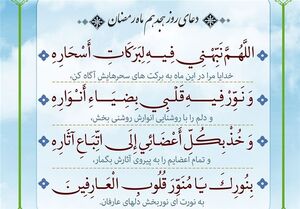 دعای روز هجدهم ماه رمضان
اللَّهُمَّ نَبِّهْنِي فِيهِ لِبَرَكَاتِ أَسْحَارِهِ
خدایا مرا در این ماه به برکت های سحرهایش آگاه کن،
وَ نَوِّرْ فِيهِ قَلْبِي بِضِيَاءِ أَنْوَارِهِ
و دلم را با روشنایی انوارش روشنی بخش،
وَ خُذْ بِكُلِّ أَعْضَائِي إِلَى اتِّبَاعِ آثَارِهِ
و تمام اعضایم را به پیروی آثارش بگمار،
بِنُورِكَ يَا مُنَوِّرَ قُلُوبِ الْعَارِفِينَ
به نورت ای نوربخش دلهای عارفان.